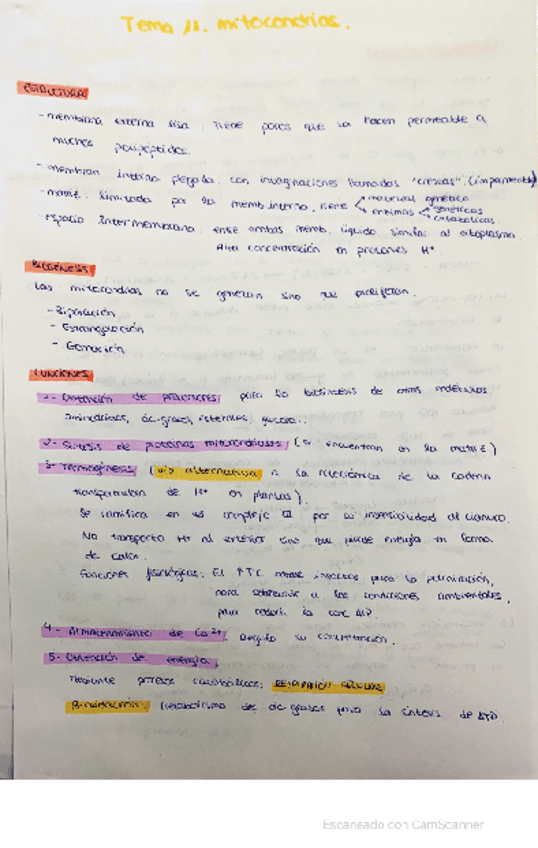 Tema 11. mitocondrias.
ESTRUCTURA
- membrana externa lisa: tiene poros que la hacen permeable a
muchos polipéptidos.
- membran interna plegada con invaginaciones llamadas "crestas". (impermeable)
- matriz: limitada por la memb. interna. tiene material genético
enzimas genéticas
catabólicas.
- espacio intermembrana: entre ambas memb. líquido similar al citoplasma.
Alta concentración en protones H+.
BIOGÉNESIS
Las mitocondrias no se generan sino que proliferan.
- Bipartición
- Estrangulación
- Gemación
FUNCIONES
1- Obtención de precursores para la biosíntesis de otras moléculas
aminoácidos, ác. grasos, esteroles, glucosa...
2- Síntesis de proteínas mitocondriales (se encuentran en la matriz)
3- Termogénesis (vía alternativa a la de la cadena
de H+ en plantas).
Se ramifica en el complejo por su insensibilidad al cianuro.
No transporta H+ al exterior sino que pierde energía en forma
de calor.
Funciones fisiológicas: El insectos para la polinización,
para a las condiciones ambientales,
para
4- Almacenamiento de Ca2+. regula su concentración.
5- Obtención de energía.
Mediante procesos catabólicos: RESPIRACIÓN CELULAR
β-oxidación: metabolismo de ác. grasos para la síntesis de ATP.
Escaneado con CamScanner